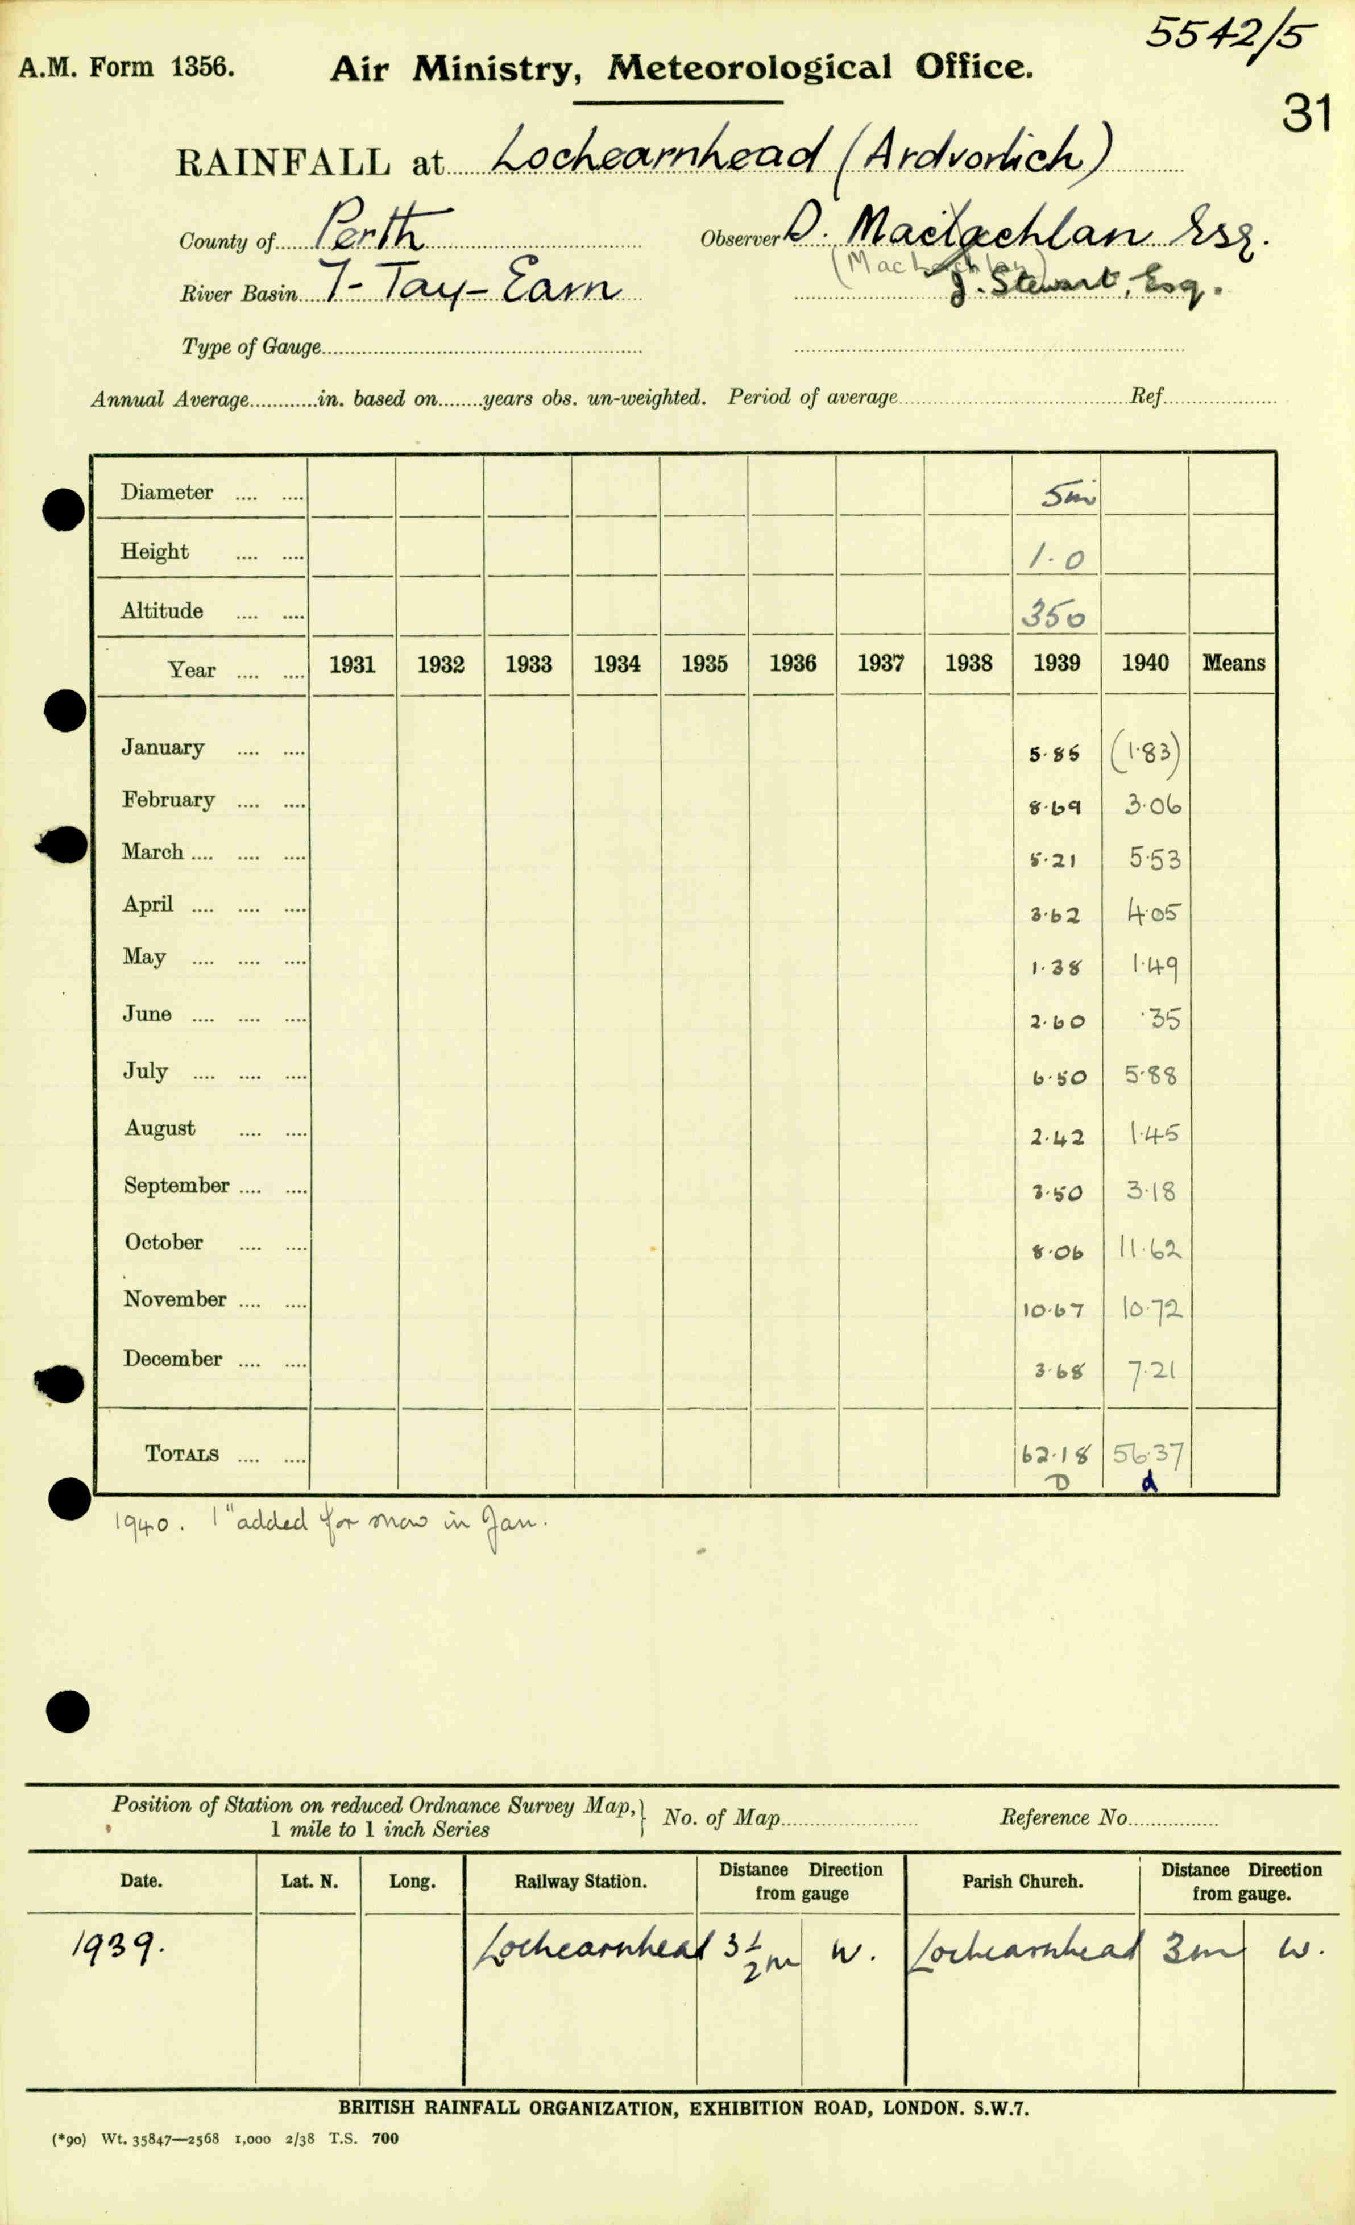 5542/5
A.M. Form 1356. Air Ministry, Meteorological Office.
31
RAINFALL at Lochearnhead (Ardvorlich)
County of Perth Observer D. Maclachlan Esq.
(MacLachlan)
River Basin 7 - Tay - Earn J. Stewart, Esq.
Type of Gauge
Annual Average in. based on years obs. un-weighted. Period of average Ref.
Diameter 5 in
Height 1.0
Altitude 350
Year 1931 1932 1933 1934 1935 1936 1937 1938 1939 1940 Means
January 5.85 (1.83)
February 8.69 3.06
March 5.21 5.53
April 3.62 4.05
May 1.38 1.49
June 2.60 .35
July 6.50 5.88
August 2.42 1.45
September 3.50 3.18
October 8.06 11.62
November 10.67 10.72
December 3.68 7.21
TOTALS 62.18 56.37
D d
1940. 1" added for snow in Jan.
Position of Station on reduced Ordnance Survey Map, } No. of Map Reference No.
1 mile to 1 inch Series
Date. Lat. N. Long. Railway Station. Distance Direction from gauge Parish Church. Distance Direction from gauge.
1939. Lochearnhead 3 1/2 m W. Lochearnhead 3 m W.
BRITISH RAINFALL ORGANIZATION, EXHIBITION ROAD, LONDON. S.W.7.
(*90) Wt. 35847—2568 1,000 2/38 T.S. 700